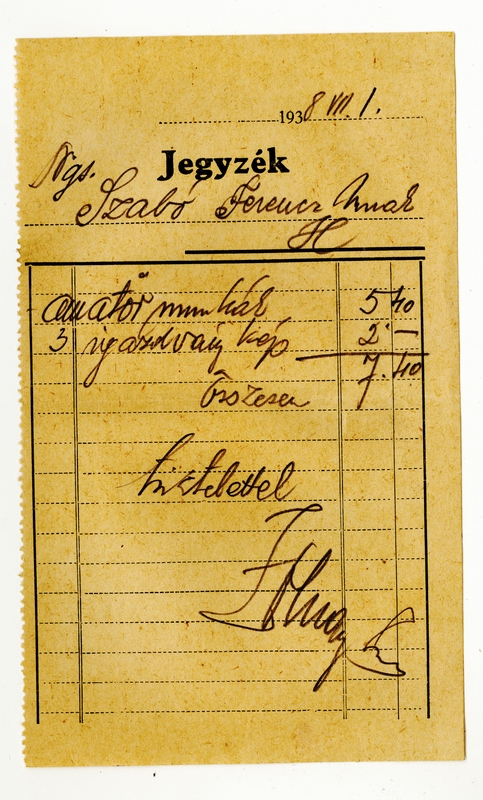 1938 VII. 1.
Jegyzék
Ngs.
Szabó Ferencz Urnak
H
amatőr munkák 5 40
3 igazolvány kép 2 —
Összesen 7.40
tisztelettel